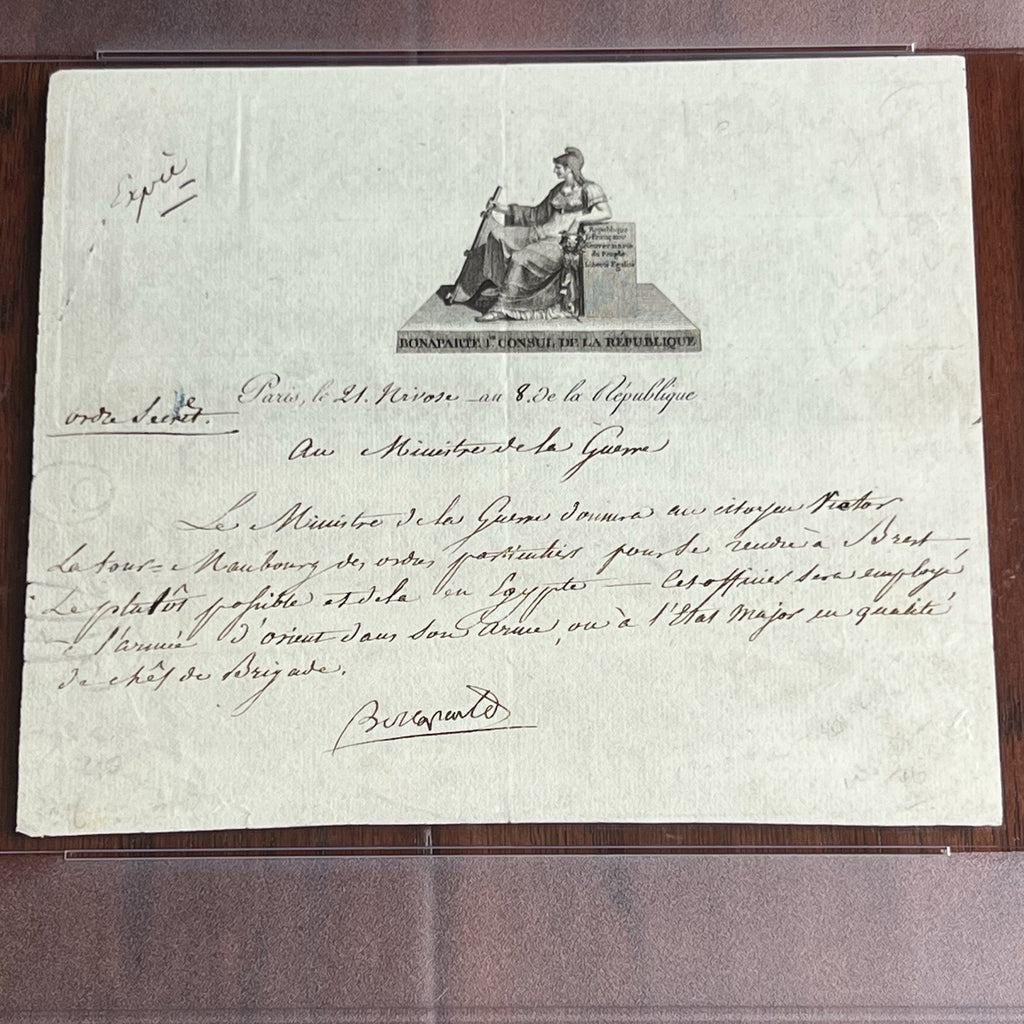 Expié
République
française
Gouvernant
du Peuple
Liberté Egalité
BONAPARTE, 1er CONSUL DE LA RÉPUBLIQUE
Paris, le 21. Nivose au 8. de la République
ordre Secret.
Au Ministre de la Guerre
Le Ministre de la Guerre donnera au citoyen Victor
La tour = Maubourg des ordres particuliers pour se rendre à Brest
Le plutôt possible et de la en Egypte — Cet officier sera employé
à l'armée d'orient dans son arme, ou à l'Etat Major en qualité
de chêf de Brigade.
Bonaparte